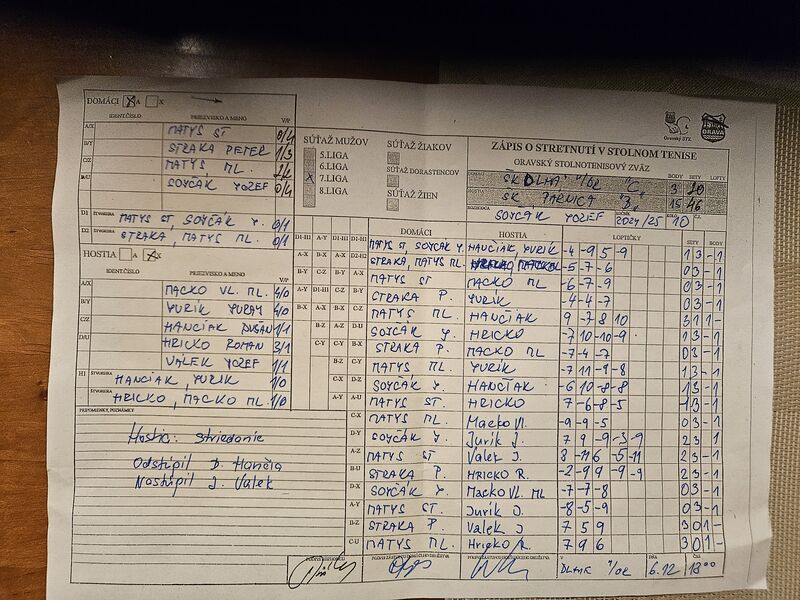 DOMÁCI A X
IDENT.ČÍSLO PRIEZVISKO A MENO V/P
A/X MATYS ST 0/4
B/Y STRAKA PETER 1/3
C/Z MATYS ML.
SOYČÁK JOZEF 0/4
D1 ŠTVORHRA MATYS ST, SOYČÁK J. 0/1
D2 STRAKA, MATYS ML. 0/1
HOSTIA A X
IDENT.ČÍSLO PRIEZVISKO A MENO V/P
A/X MACKO VL. ML. 4/0
B/Y YURÍK YURAY 4/0
C/Z HANČIAK DUŠAN 1/1
D/U HRICKO ROMAN 3/1
VALEK JOZEF 1/1
H1 ŠTVORHRA HANČIAK, YURÍK 1/0
HRICKO, MACKO ML. 1/0
PRIPOMIENKY, POZNÁMKY
Hostia: striedanie
Odstúpil D. Hančia
Nastúpil J. Valek
SÚŤAŽ MUŽOV
5.LIGA
6.LIGA
X 7.LIGA
8.LIGA
SÚŤAŽ ŽIAKOV
SÚŤAŽ DORASTENCOV
SÚŤAŽ ŽIEN
Oravský STZ
ORAVA
ZÁPIS O STRETNUTÍ V STOLNOM TENISE
ORAVSKÝ STOLNOTENISOVÝ ZVÄZ
BODY SETY LOPTY
DOMÁCI SK DLHÁ N/OR "C" 3
HOSTIA SK PÁRNICA "B" 15 46
ROZHODCA SOYČÁK JOZEF ROČNÍK 2024/25 10
DOMÁCI HOSTIA LOPTIČKY SETY BODY
MATYS ST, SOYČÁK J. HANČIAK YURÍK -4 -9 5 -9 1 3 -1
STRAKA, MATYS ML. -5 -7 -6 0 3 -1
MATYS ST MACKO ML -6 -7 -9 0 3 -1
STRAKA P. YURÍK -4 -4 -7 0 3 -1
MATYS ML. HANČIAK 9 -7 8 10 3 1 1-
SOYČÁK J. HRICKO -7 10 -10 -9 1 3 -1
STRAKA P. MACKO ML -7 -4 -7 0 3 -1
MATYS ML. YURÍK -7 11 -9 -8 1 3 -1
SOYČÁK J. HANČIAK -6 10 -8 -8 1 3 -1
MATYS ST HRICKO 7 -6 -8 -5 1 3 -1
C-X MATYS ML. Macko Vl. -9 -9 -5 0 3 -1
D-Y SOYČÁK J. Jurík J. 7 9 -9 -3 -9 2 3 -1
A-Z MATYS ST Valek J. 8 -11 6 -5 -11 2 3 -1
B-U STRAKA P. HRICKO R. -2 -9 9 9 -9 2 3 -1
D-X SOYČÁK J. Macko Vl. ML -7 -7 -8 0 3 -1
A-Y MATYS ST. Jurík J. -8 -5 -9 0 3 -1
B-Z STRAKA P. Valek J. 7 5 9 3 0 1-
C-U MATYS ML. Hricko R. 7 9 6 3 0 1-
V DLHÁ N/OR DŇA 6.12 ČAS 18 00